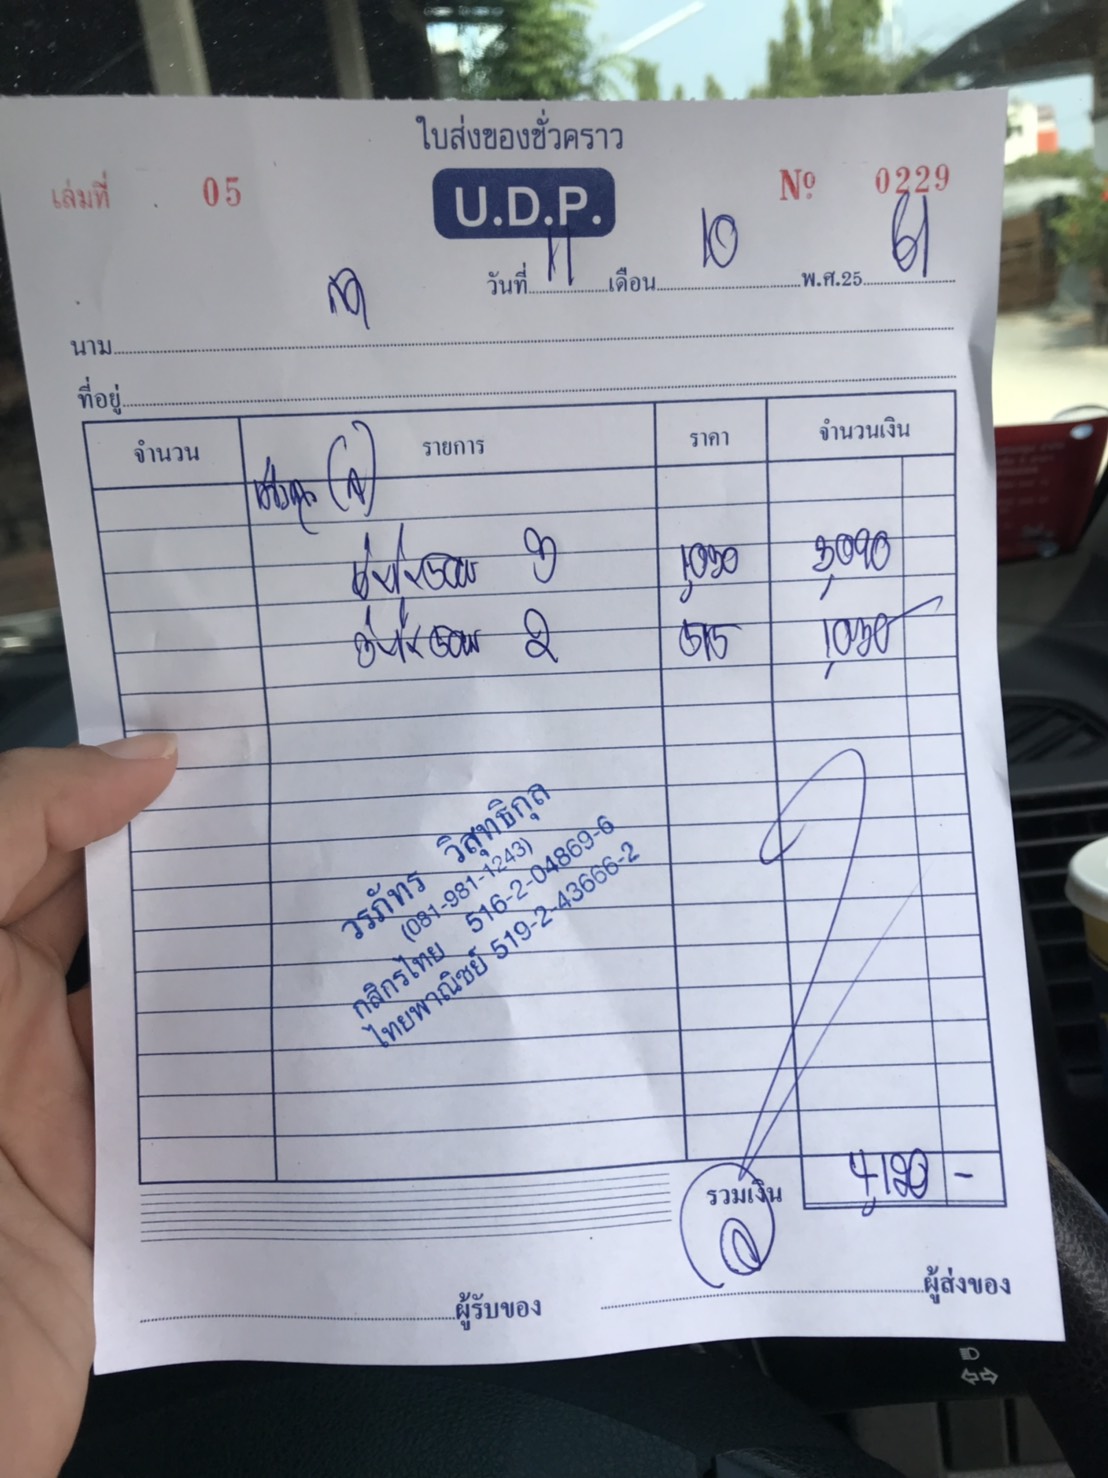 ใบส่งของชั่วคราว
เล่มที่ 05 U.D.P. Nº 0229
วันที่ 11 เดือน 10 พ.ศ.25 61
นาม
ที่อยู่
จำนวน รายการ ราคา จำนวนเงิน
3 1,030 3,090
2 515 1,030
วรภัทร วิสุทธิกุล
(081-981-1243)
กสิกรไทย 516-2-04869-6
ไทยพาณิชย์ 519-2-43666-2
รวมเงิน 4,120 -
ผู้รับของ ผู้ส่งของ